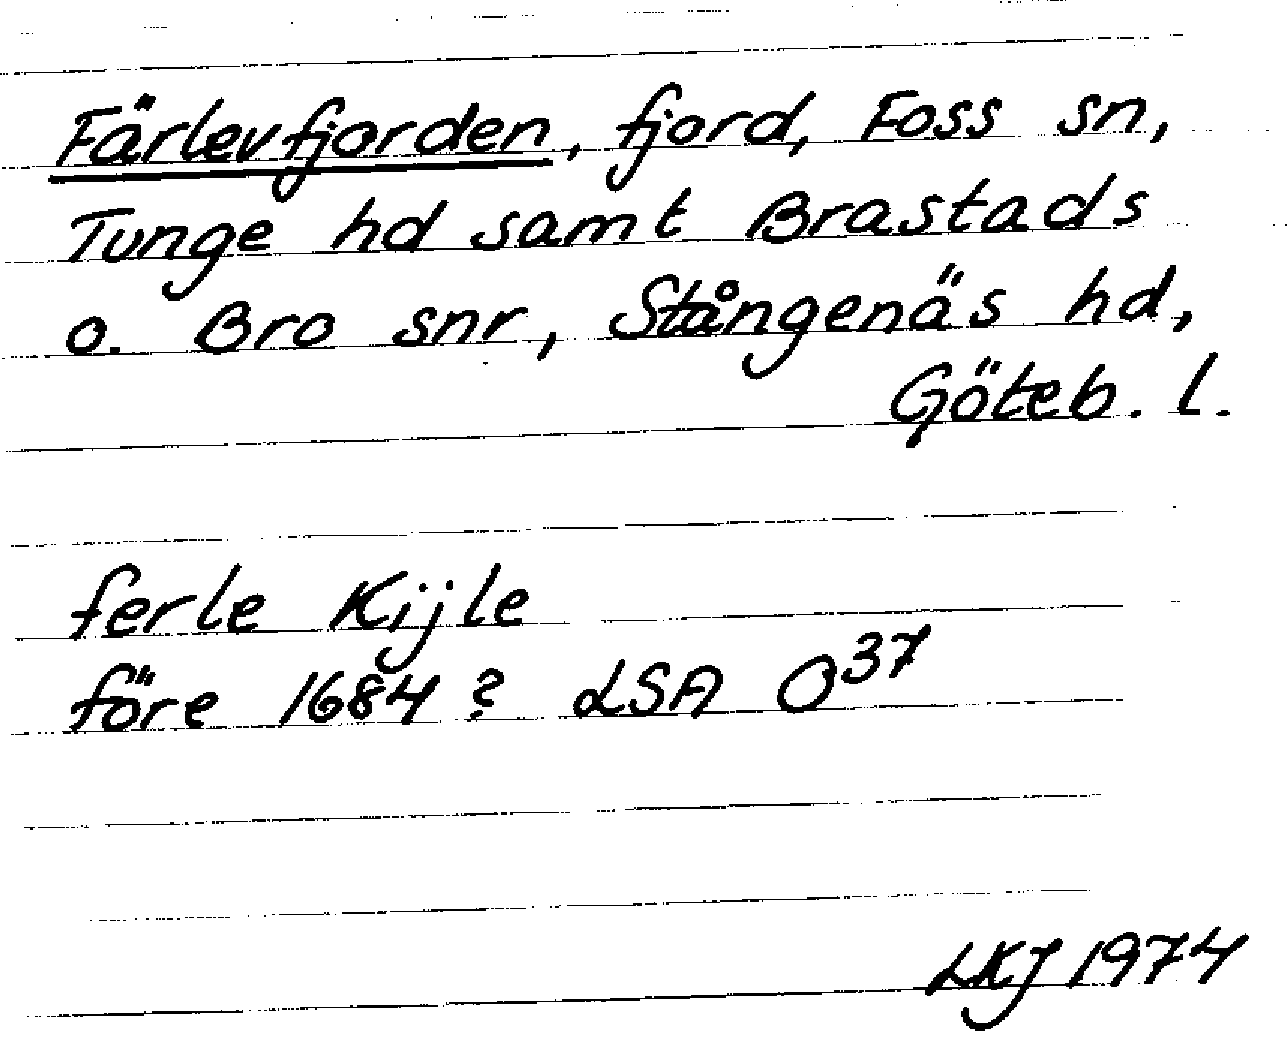 Färlevfjorden, fjord, Foss sn,
Tunge hd samt Brastads
o. Bro snr, Stångenäs hd,
Göteb. l.
ferle Kijle
före 1684? LSA O³⁷
LKJ 1974